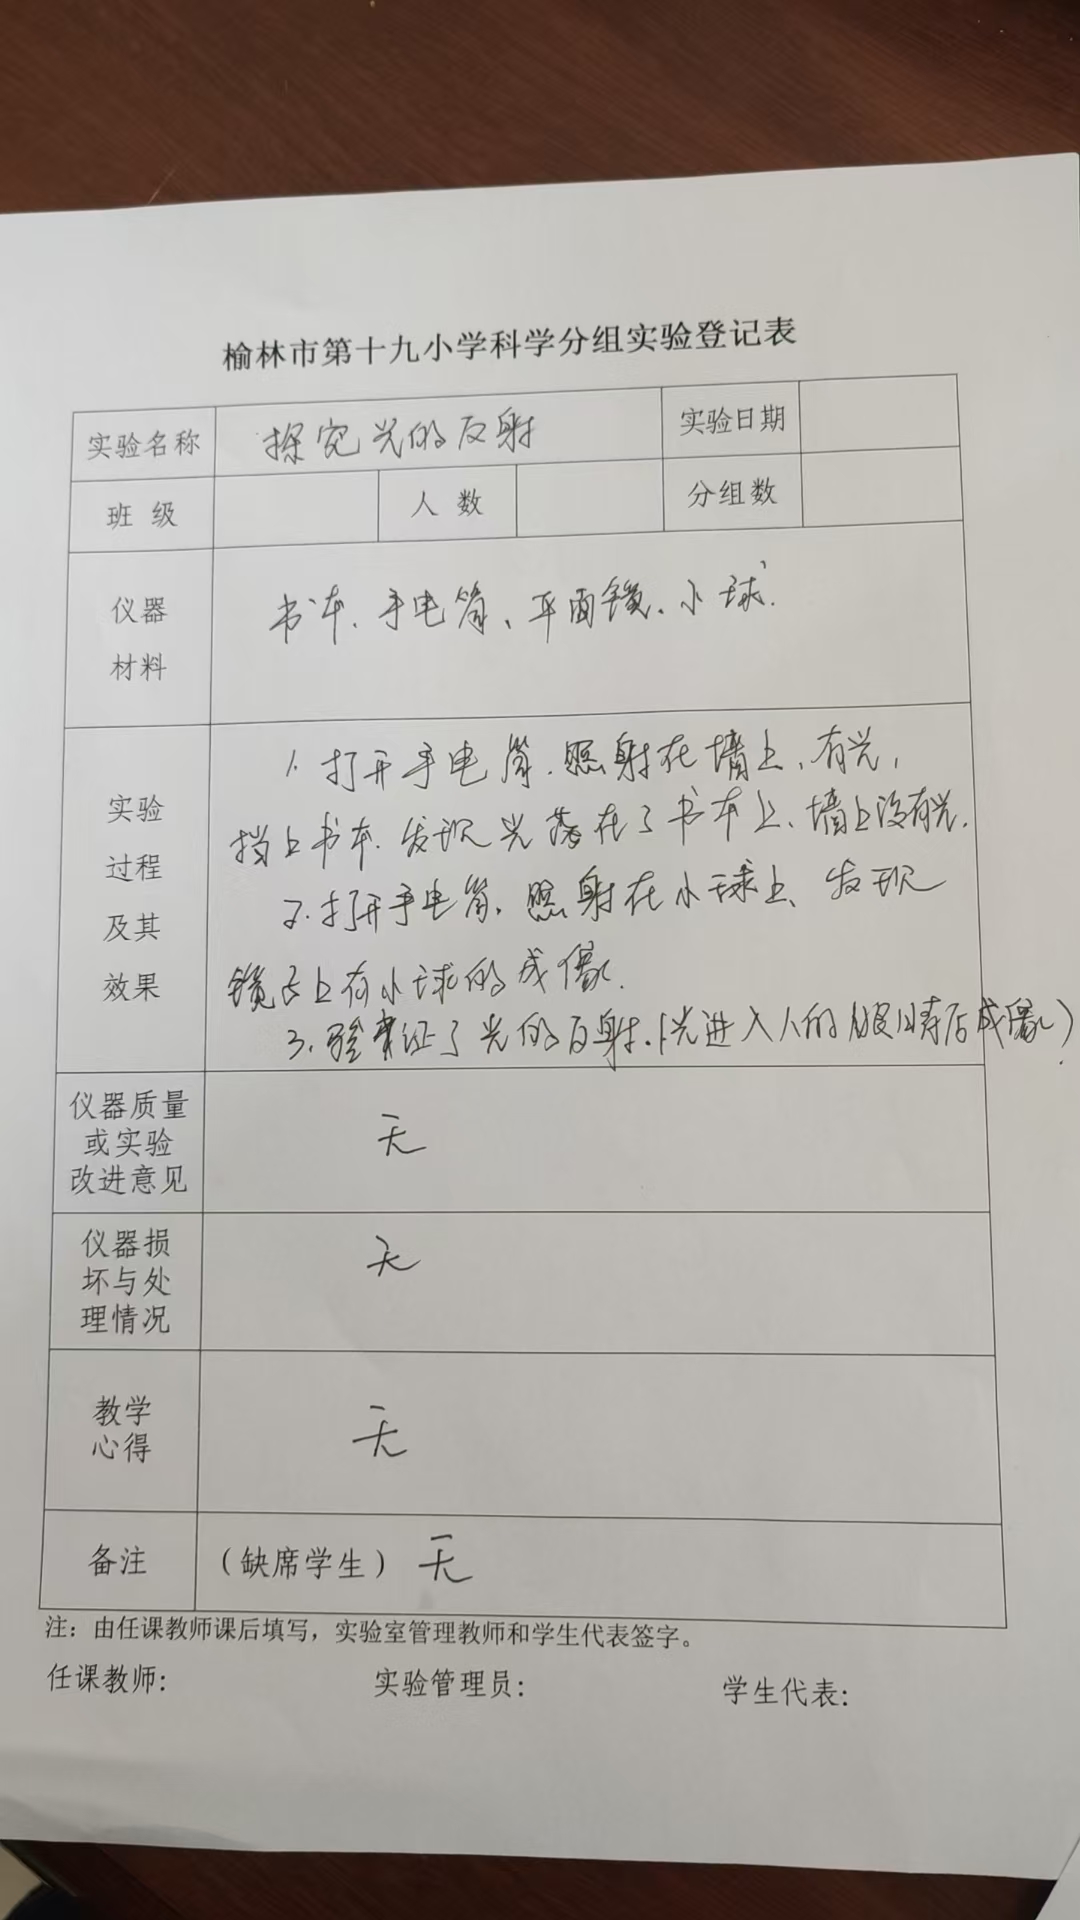 榆林市第十九小学科学分组实验登记表
实验名称 探究光的反射 实验日期
班 级 人 数 分组数
仪器 材料
书本、手电筒、平面镜、小球.
实验 过程 及其 效果
1. 打开手电筒.照射在墙上,有光,
挡上书本.发现光落在了书本上、墙上没有光.
2.打开手电筒,照射在小球上、发现
镜子上有小球的成像.
3.验证了光的反射.(光进入人的眼睛后成像)
仪器质量
或实验
改进意见
无
仪器损
坏与处
理情况
无
教学
心得
无
备注 (缺席学生) 无
注：由任课教师课后填写，实验室管理教师和学生代表签字。
任课教师: 实验管理员: 学生代表: